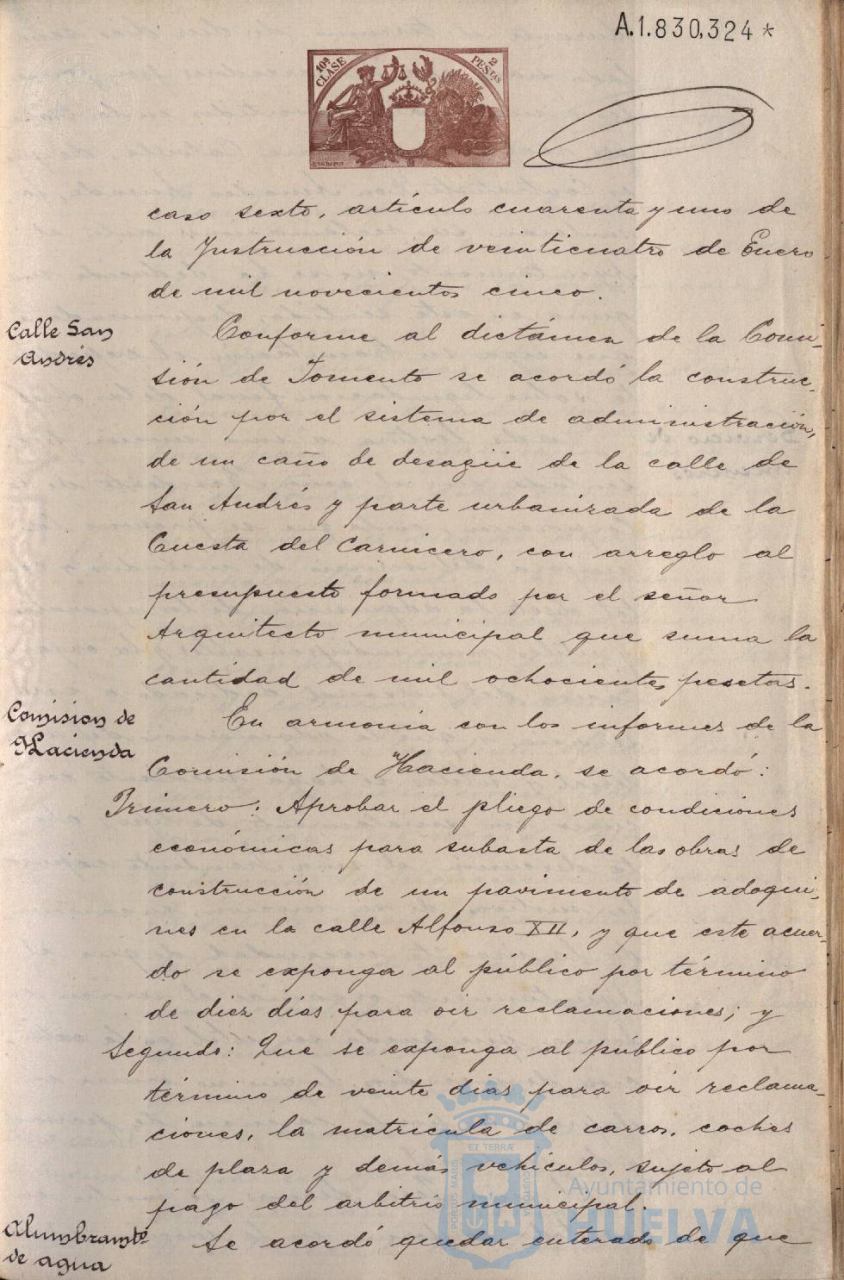 A.1.830,324*
10ª CLASE
2 PESTAS
caso sexto, artículo cuarenta y uno de
la Instrucción de veinticuatro de Enero
de mil novecientos cinco.
Calle San
Andrés
Conforme al dictámen de la Comi-
sión de Fomento se acordó la construc-
ción por el sistema de administración,
de un caño de desagüe de la calle de
San Andrés y parte urbanizada de la
Cuesta del Carnicero, con arreglo al
presupuesto formado por el señor
Arquitecto municipal que suma la
cantidad de mil ochocientas pesetas.
Comision de
Hacienda
En armonia con los informes de la
Comisión de Hacienda, se acordó:
Primero: Aprobar el pliego de condiciones
económicas para subasta de las obras de
construcción de un pavimento de adoqui-
nes en la calle Alfonso XII, y que este acuer-
do se exponga al público por término
de diez días para oir reclamaciones; y
Segundo: Que se exponga al público por
término de veinte días para oir reclama-
ciones, la matrícula de carros, coches
de plaza y demás vehículos, sujeto al
pago del arbitrio municipal.
Alumbramtº
de agua
Se acordó quedar enterado de que
Ayuntamiento de
HUELVA